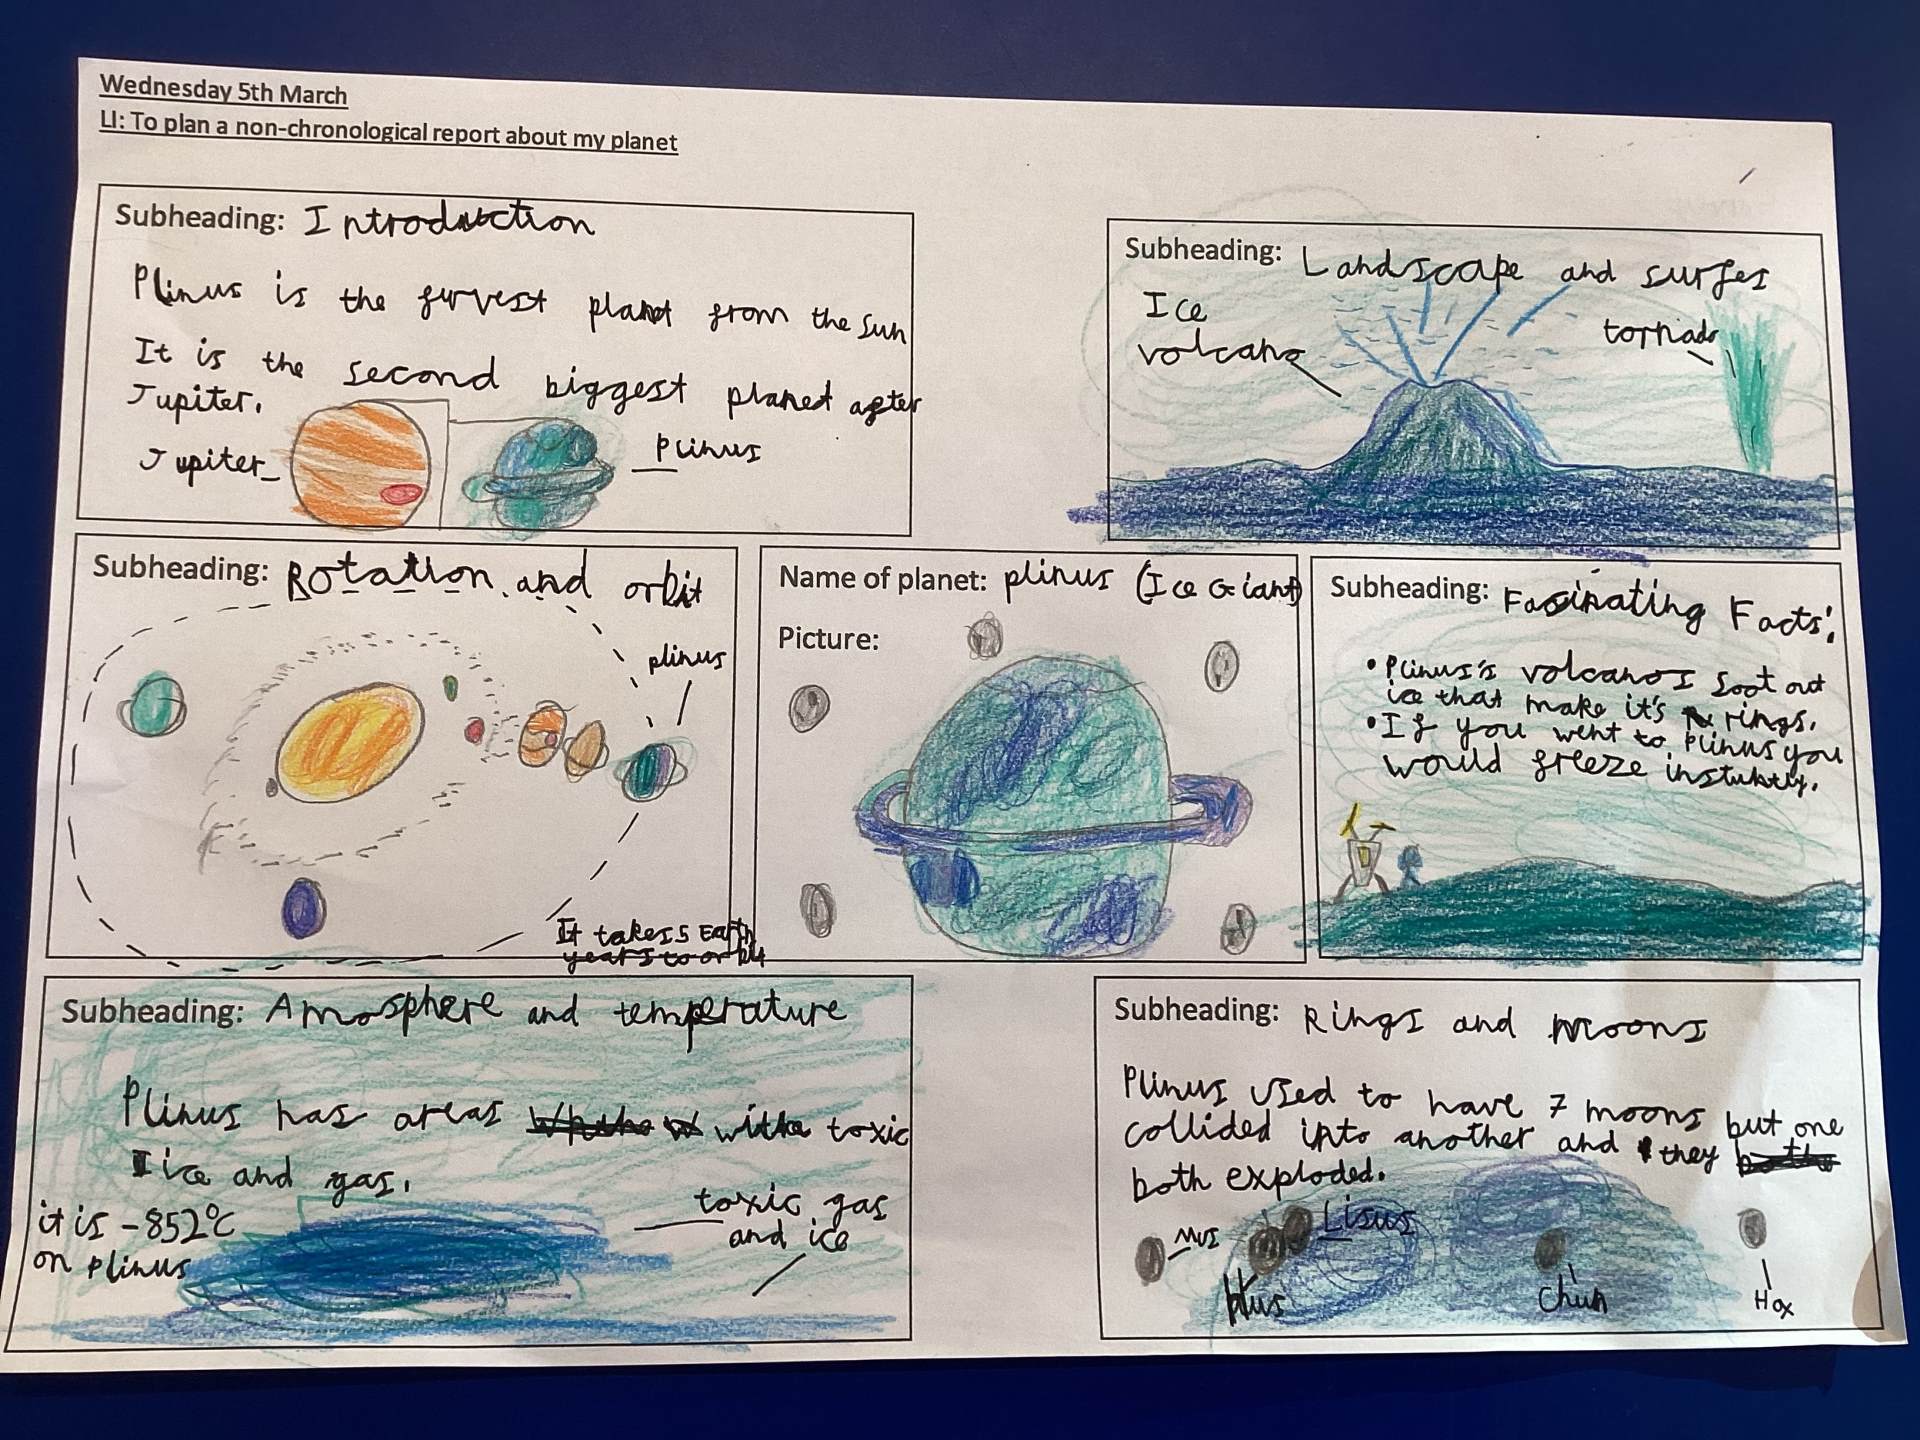 Wednesday 5th March
LI: To plan a non-chronological report about my planet
Subheading: Introduction
Plinus is the furvest planet from the sun
It is the second biggest planed after
Jupiter.
Jupiter
Plinus
Subheading: Landscape and surfes
Ice
volcano
tornado
Subheading: Rotation and orbit
plinus
It takes 5 Earth
years to orbit
Name of planet: plinus (Ice Giant)
Picture:
Subheading: Facsinating Facts!
• Plinus's volcanos soot out
ice that make it's rings.
• If you went to Plinus you
would freeze
Subheading: Amosphere and temperature
Plinus has areas with toxic
ice and gas.
it is -852°C
on Plinus
toxic gas
and ice
Subheading: Rings and moons
Plinus used to have 7 moons but one
collided into another and they
both exploded.
Mus
Lisus
Chun
Hox